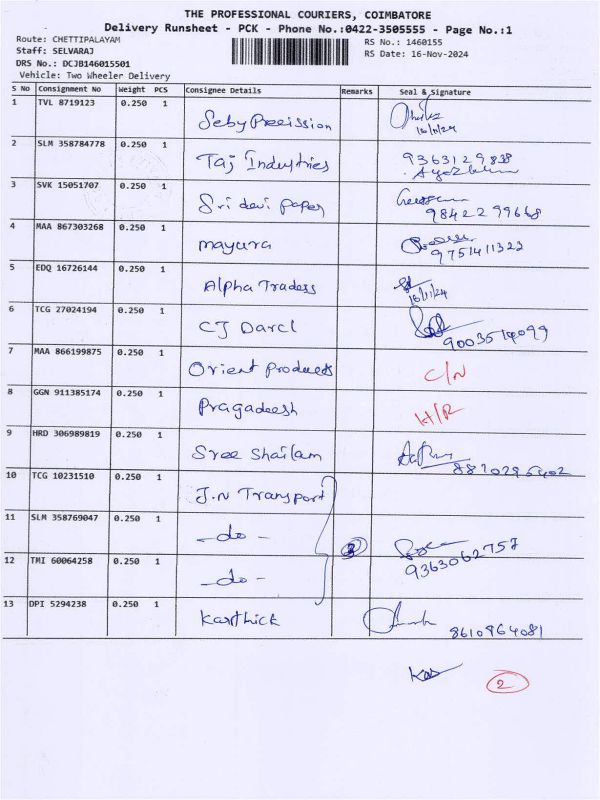 THE PROFESSIONAL COURIERS, COIMBATORE
Delivery Runsheet - PCK - Phone No.:0422-3505555 - Page No.:1
Route: CHETTIPALAYAM RS No.: 1460155
Staff: SELVARAJ RS Date: 16-Nov-2024
DRS No.: DCJB146015501
Vehicle: Two Wheeler Delivery
S No Consignment No Weight PCS Consignee Details Remarks Seal & Signature
1 TVL 8719123 0.250 1 Seby Precission
16/11/24
2 SLM 358784778 0.250 1 Taj Industries 9363129838
3 SVK 15051707 0.250 1 Sri devi paper
9842299668
4 MAA 867303268 0.250 1 mayura
9751411322
5 EDQ 16726144 0.250 1 Alpha Tradess
16/11/24
6 TCG 27024194 0.250 1 CJ Darcl
7 MAA 866199875 0.250 1 Orient Products C/N
8 GGN 911385174 0.250 1 Pragadeesh H/R
9 HRD 306989819 0.250 1 Sree Shailam
10 TCG 10231510 0.250 1 J.N Transport
11 SLM 358769047 0.250 1 -do- 3
12 TMI 60064258 0.250 1 -do- 9363062757
13 DPI 5294238 0.250 1 Karthick
8610964081
2